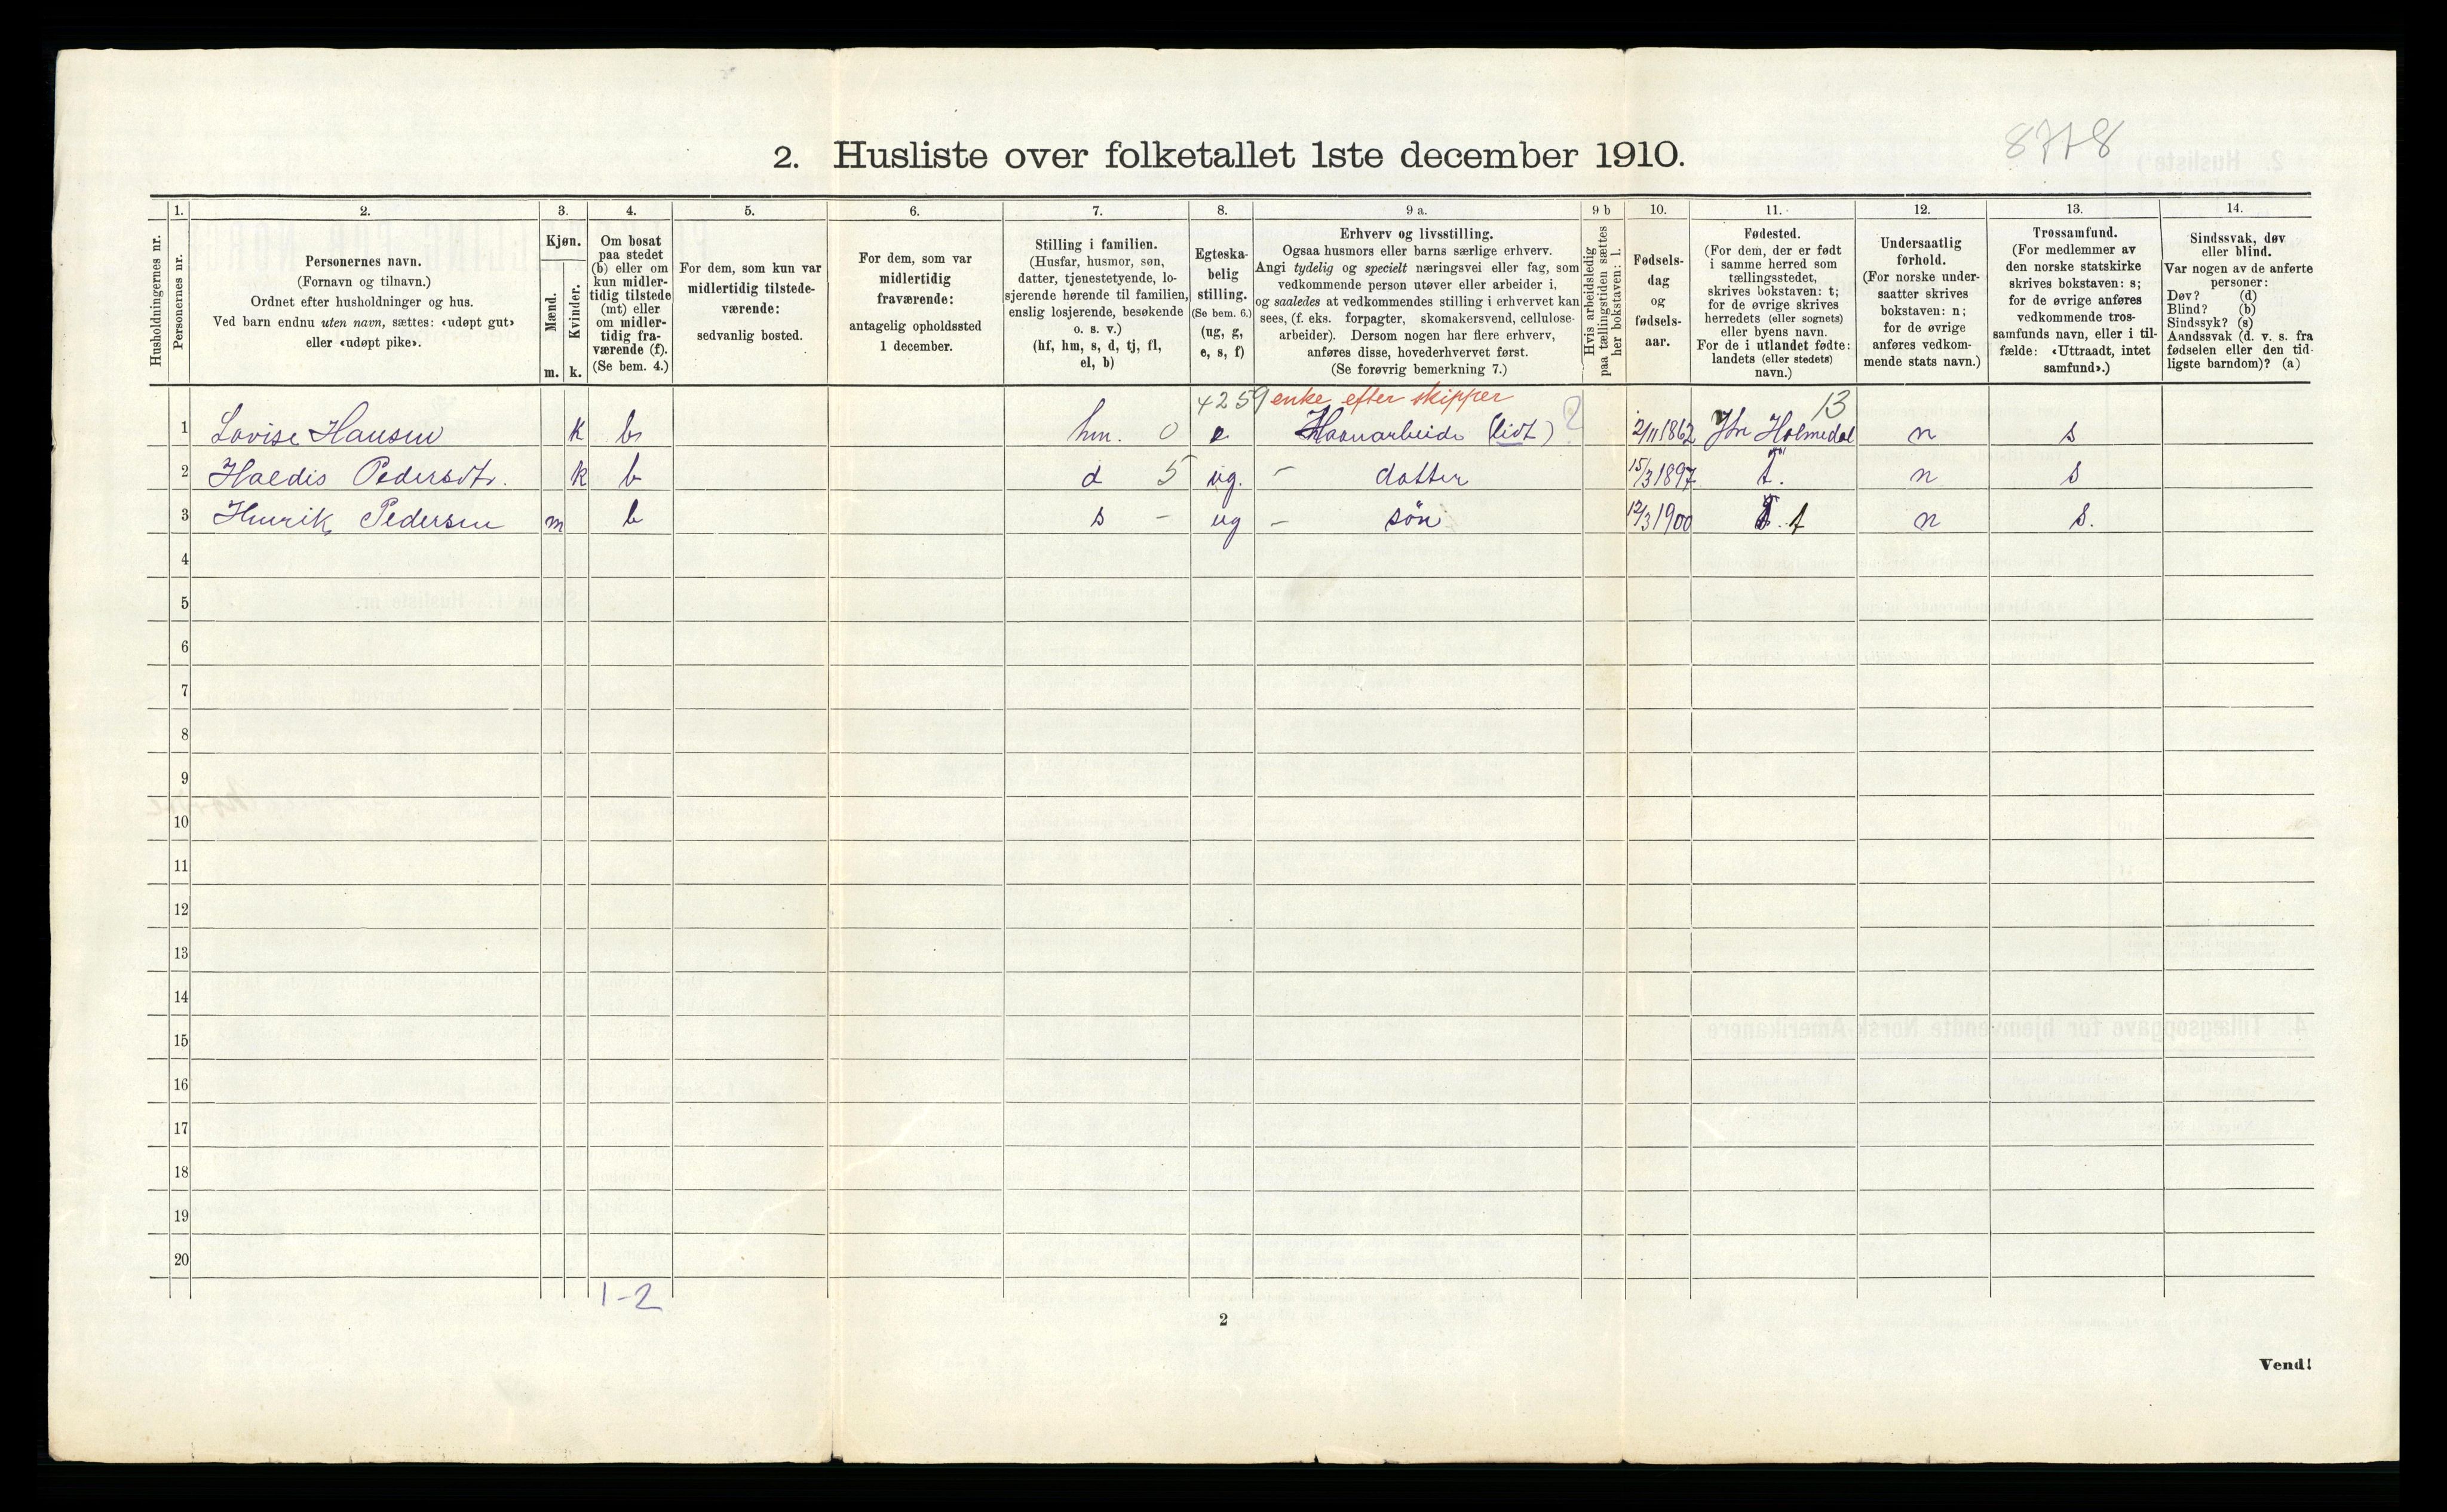 8778
2. Husliste over folketallet 1ste december 1910.
1. 2. 3. 4. 5. 6. 7. 8. 9 a. 9 b 10. 11. 12. 13. 14.
Husholdningernes nr.
Personernes nr.
Personernes navn.
(Fornavn og tilnavn.)
Ordnet efter husholdninger og hus.
Ved barn endnu uten navn, sættes: «udøpt gut»
eller «udøpt pike».
Kjøn.
Mænd.
Kvinder.
m. k.
Om bosat
paa stedet
(b) eller om
kun midler-
tidig tilstede
(mt) eller
om midler-
tidig fra-
værende (f).
(Se bem. 4.)
For dem, som kun var
midlertidig tilstede-
værende:
sedvanlig bosted.
For dem, som var
midlertidig
fraværende:
antagelig opholdssted
1 december.
Stilling i familien.
(Husfar, husmor, søn,
datter, tjenestetyende, lo-
sjerende hørende til familien,
enslig losjerende, besøkende
o. s. v.)
(hf, hm, s, d, tj, fl,
el, b)
Egteska-
belig
stilling.
(Se bem. 6.)
(ug, g,
e, s, f)
Erhverv og livsstilling.
Ogsaa husmors eller barns særlige erhverv.
Angi tydelig og specielt næringsvei eller fag, som
vedkommende person utøver eller arbeider i,
og saaledes at vedkommendes stilling i erhvervet kan
sees, (f. eks. forpagter, skomakersvend, cellulose-
arbeider). Dersom nogen har flere erhverv,
anføres disse, hovederhvervet først.
(Se forøvrig bemerkning 7.)
Hvis arbeidsledig
paa tællingstiden sættes
her bokstaven: l.
Fødsels-
dag
og
fødsels-
aar.
Fødested.
(For dem, der er født
i samme herred som
tællingsstedet,
skrives bokstaven: t;
for de øvrige skrives
herredets (eller sognets)
eller byens navn.
For de i utlandet fødte:
landets (eller stedets)
navn.)
Undersaatlig
forhold.
(For norske under-
saatter skrives
bokstaven: n;
for de øvrige
anføres vedkom-
mende stats navn.)
Trossamfund.
(For medlemmer av
den norske statskirke
skrives bokstaven: s;
for de øvrige anføres
vedkommende tros-
samfunds navn, eller i til-
fælde: «Uttraadt, intet
samfund».)
Sindssvak, døv
eller blind.
Var nogen av de anførte
personer:
Døv? (d)
Blind? (b)
Sindssyk? (s)
Aandssvak (d. v. s. fra
fødselen eller den tid-
ligste barndom)? (a)
4259 enke efter skipper 13
1 Lovise Hansen k b hm. 0 e Haanarbeide (lidt) ? 2/11 1862 Ytre Holmedal n s
2 Haldis Pedersdtr. k b d 5 ug. - datter 15/3 1897 t. n s
3 Henrik Pedersen m b s - ug - søn 12/3 1900 t n s.
4
5
6
7
8
9
10
11
12
13
14
15
16
17
18
19
20
1-2
2
Vend!